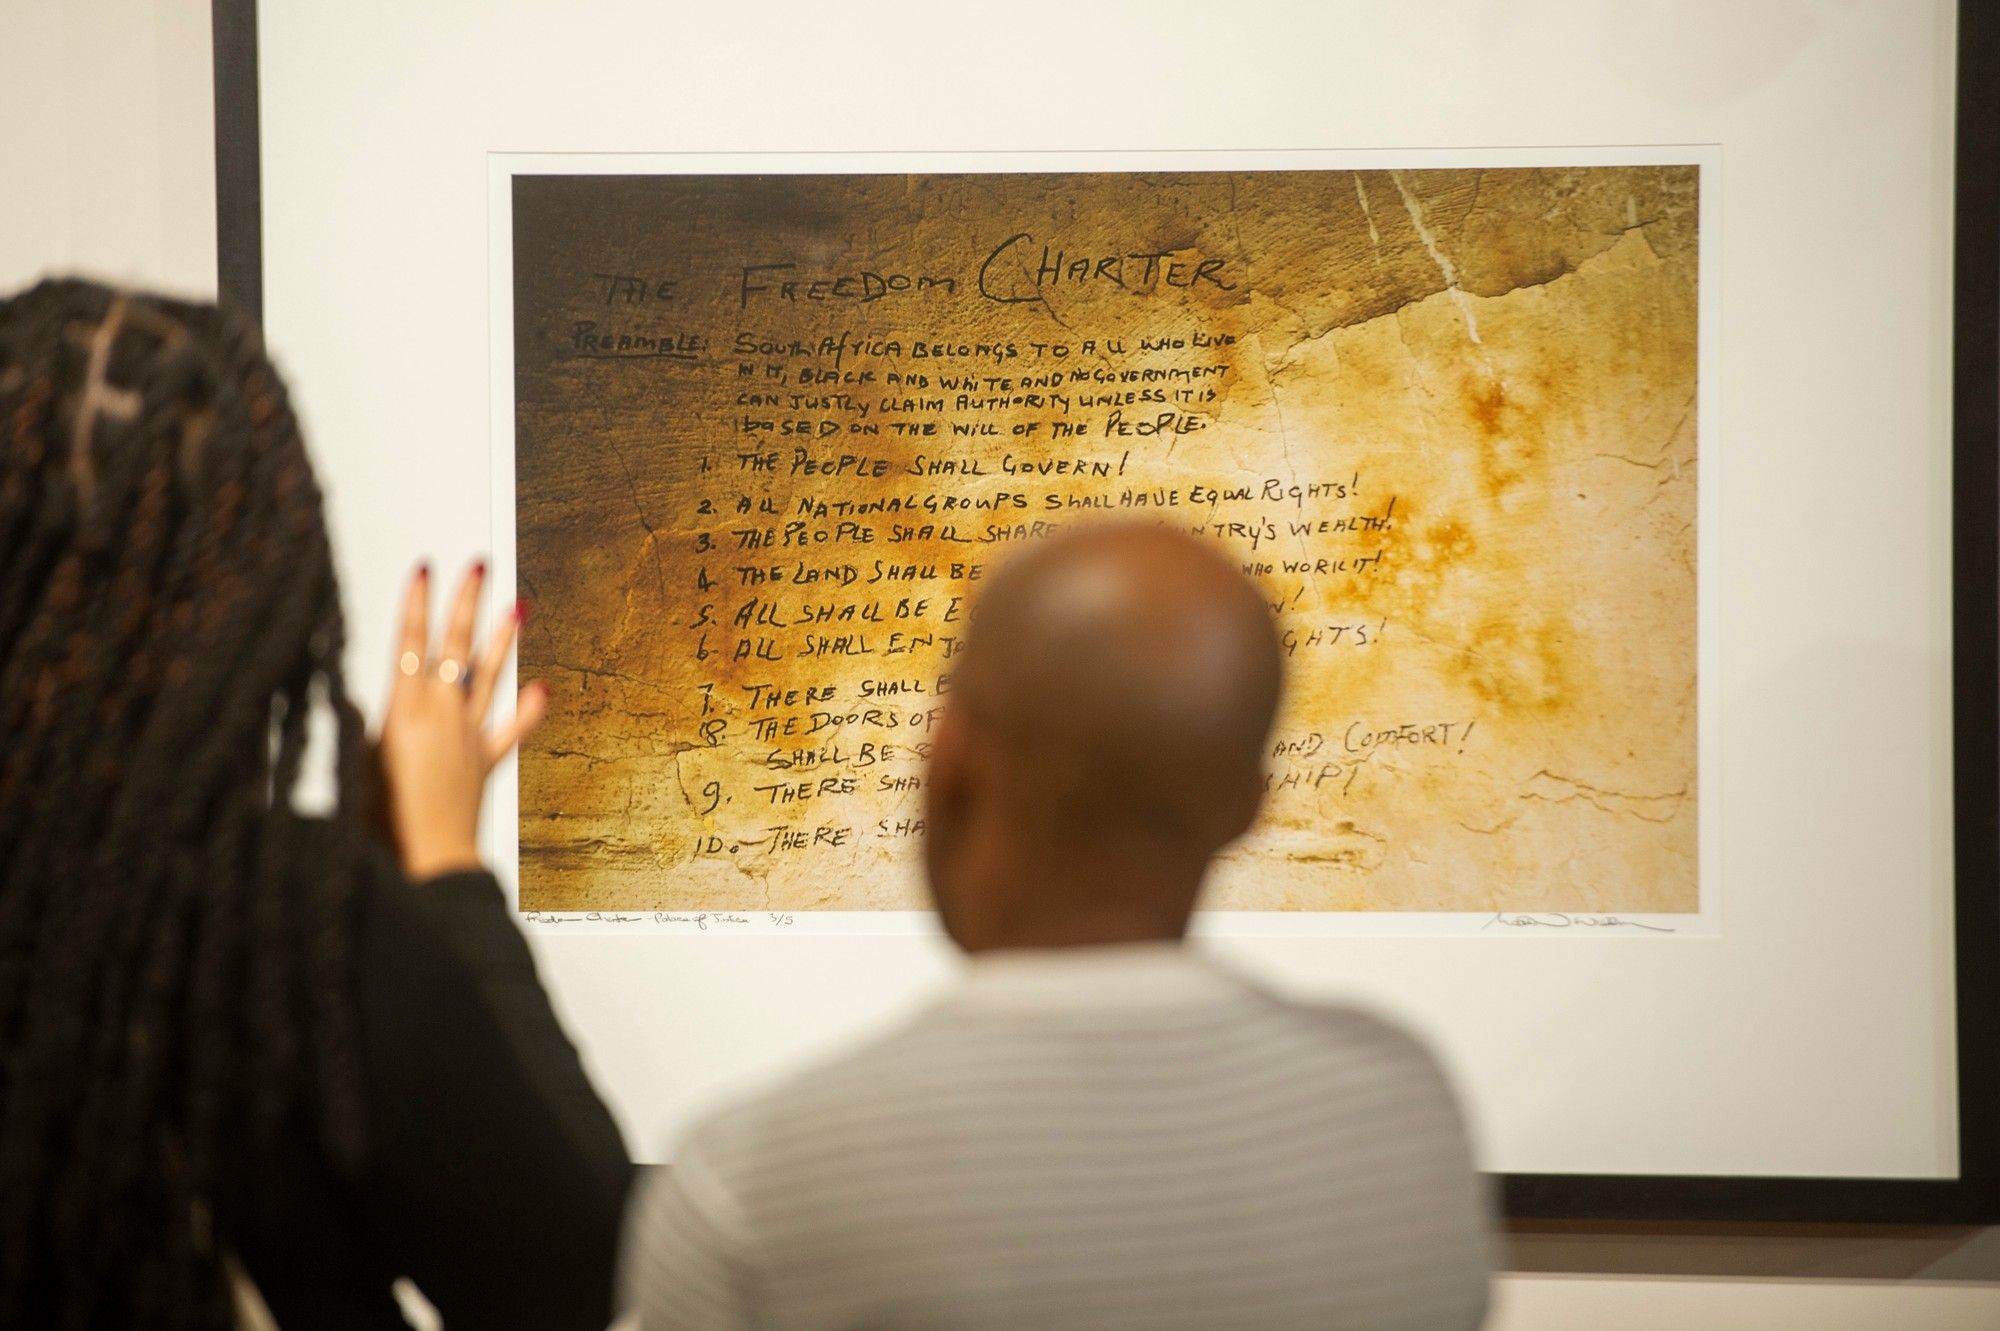 THE FREEDOM CHARTER
PREAMBLE: SOUTH AFRICA BELONGS TO ALL WHO LIVE
IN IT, BLACK AND WHITE, AND NO GOVERNMENT
CAN JUSTLY CLAIM AUTHORITY UNLESS IT IS
baSED ON THE WILL OF THE PEOPLE.
1. THE PEOPLE SHALL GOVERN!
2. ALL NATIONAL GROUPS SHALL HAVE EQUAL RIGHTS!
3. THE PEOPLE SHALL SHARE NTRY'S WEALTH!
4. THE LAND SHALL BE WHO WORK IT!
5. ALL SHALL BE E W!
6. ALL SHALL ENJO GHTS!
7. THERE SHALL
8. THE DOORS OF
SHALL BE AND COMFORT!
9. THERE SHA SHIP!
10. THERE SHA
Freedom Charter - Palace of Justice 3/5